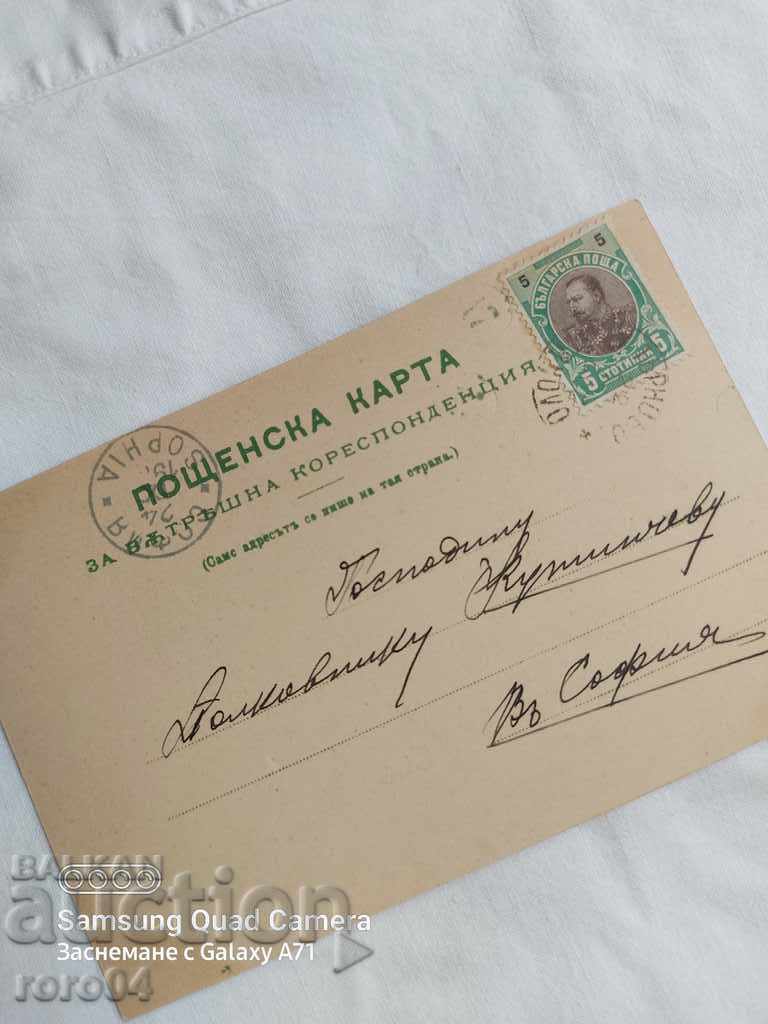 5 5
БЪЛГАРСКА ПОЩА
5 СТОТИНКИ 5
ПОЩЕНСКА КАРТА
ЗА ВѪТРѢШНА КОРЕСПОНДЕНЦИЯ
(Само адресътъ се пише на тая страна.)
СОФИЯ
24
Господину
Полковнику
Въ София
BALKAN
auction
Samsung Quad Camera
Заснемане с Galaxy A71
roro04